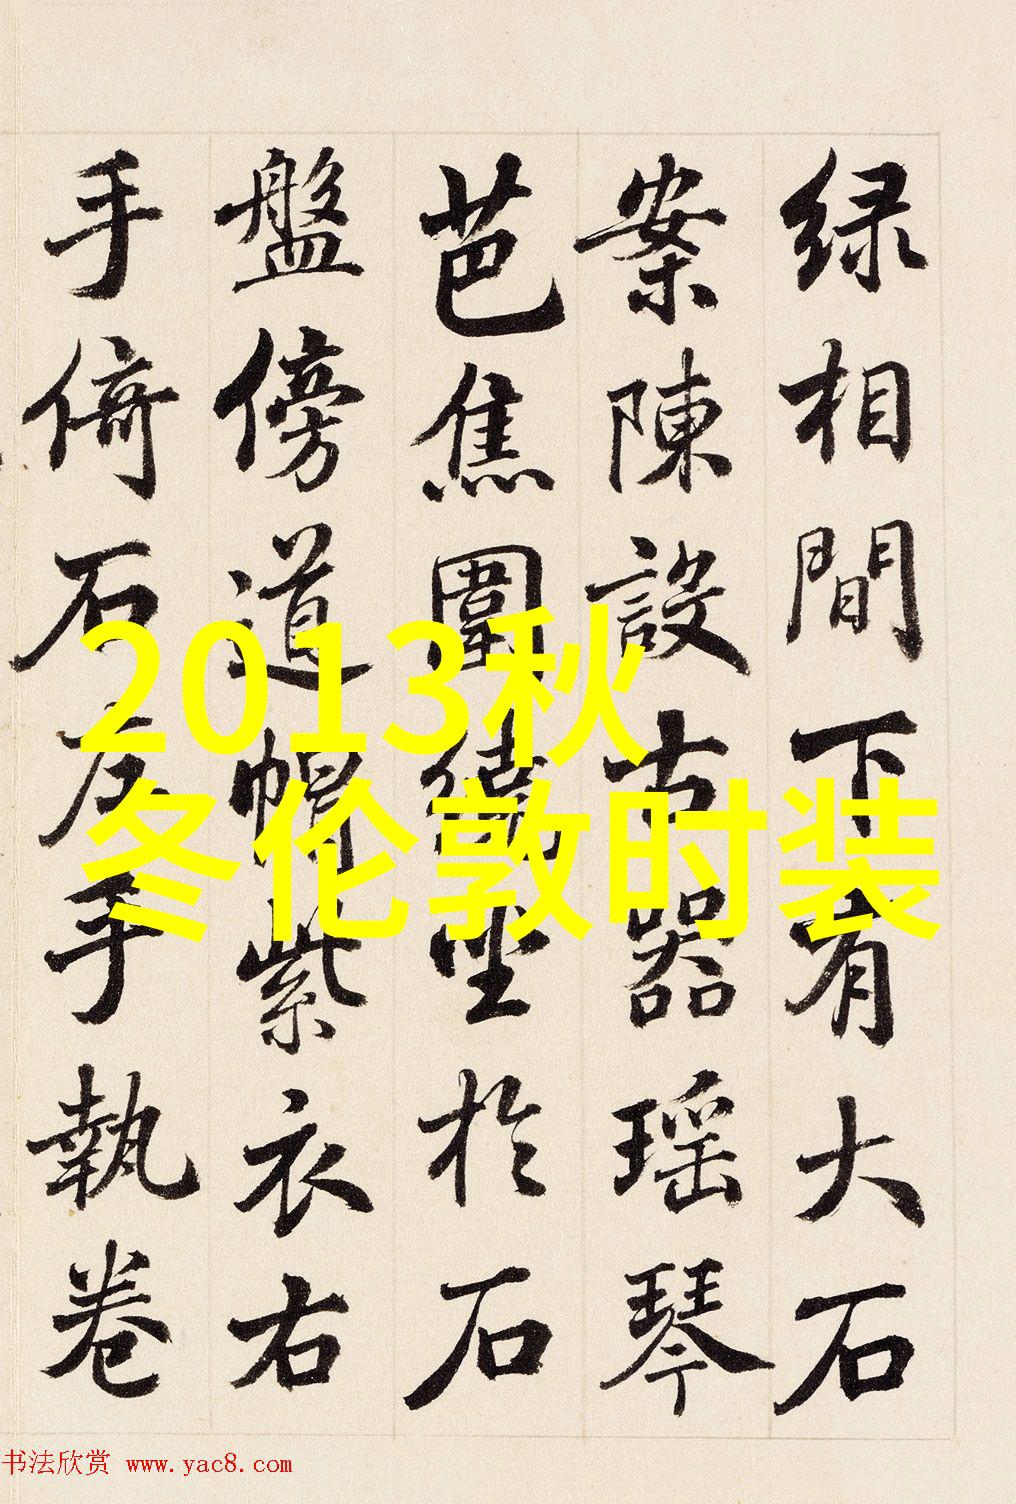 绿相間下有大石
案陳設古器瑶琴
芭焦圍繞坐於石
盤傍道帽紫衣右
手倚石左手執卷
2013秋
冬伦敦时装
书法欣赏 www.yac8.com